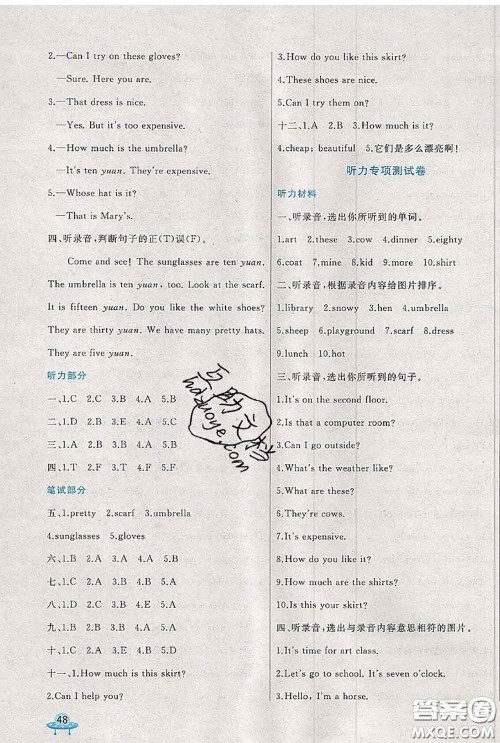 2.—Can I try on these gloves?
—Sure. Here you are.
3.—That dress is nice.
—Yes. But it is too expensive.
4.—How much is the umbrella?
—It's ten yuan. They're expensive.
5.—Whose hat is it?
—That is Mary's.
四、听录音,判断句子的正(T)误(F)。
Come and see! The sunglasses are ten yuan.
The umbrella is ten yuan, too. Look at the scarf.
It is fifteen yuan. Do you like the white shoes?
They are thirty yuan. We have many pretty hats.
They are five yuan.
听力部分
一、1.C 2.C 3.B 4.A 5.C
二、1.C 2.A 3.B 4.A
三、1.D 2.A 3.E 4.C 5.B
四、1.T 2.F 3.T 4.F 5.F
笔试部分
五、1.pretty 2.scarf 3.umbrella
4.sunglasses 5.gloves
六、1.C 2.A 3.C 4.A 5.B
七、1.B 2.A 3.B 4.C 5.A
八、1.D 2.A 3.B 4.E 5.C
九、1.B 2.B 3.A 4.B 5.A
十、1.C 2.D 3.B 4.E 5.A
十一、1.How much is this skirt?
2.Can I help you?
48
3.How do you like this skirt?
4.These shoes are nice.
5.Can I try them on?
十二、1.A 2.B 3.How much is it?
4.cheap; beautiful 5.它们是多么漂亮啊!
听力专项测试卷
听力材料
一、听录音,选出你所听到的单词。
1.art 2.these 3.cow 4.dinner 5.eighty
6.coat 7.mine 8.kid 9.more 10.skirt
二、听录音,根据录音内容给图片排序。
1.library 2.snowy 3.hen 4.umbrella
5.sheep 6.playground 7.scarf 8.dress
9.lunch 10.hot
三、听录音,选出你所听到的句子。
1.It's on the second floor.
2.Is that a computer room?
3.Can I go outside?
4.What's the weather like?
5.What are these?
6.They're cows.
7.It's expensive.
8.How do you like it?
9.How much are the shirts?
10.Is this your skirt?
四、听录音,选出与录音内容意思相符的图片。
1.It's time for art class.
2.Let's go to school. Let's go home.
3.Hello, I'm a horse.
互助文档
hdzuoye.com
答案圈
MXQE.COM